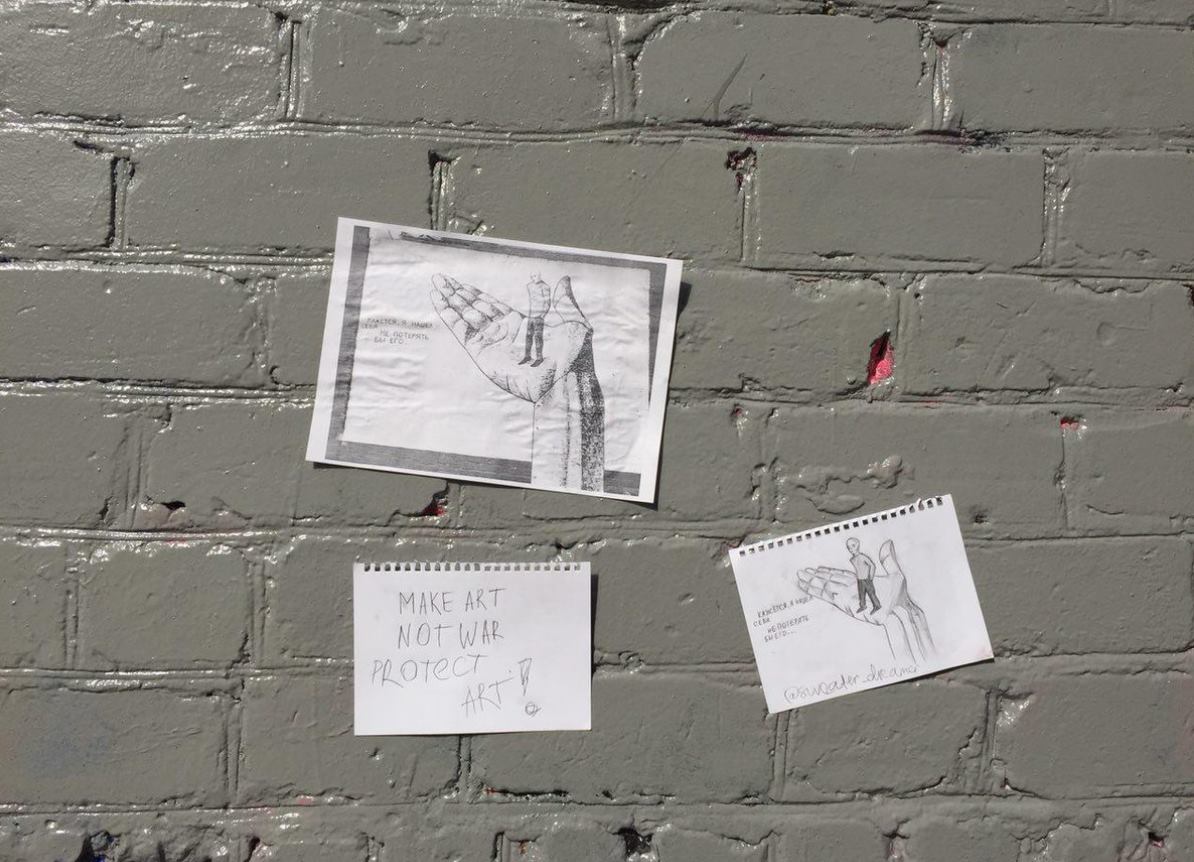 КАЖЕТСЯ, Я НАШЁЛ
СЕБЯ
НЕ ПОТЕРЯТЬ
БЫ ЕГО...
MAKE ART
NOT WAR
PROTECT
ART!
КАЖЕТСЯ, Я НАШЁЛ
СЕБЯ
НЕ ПОТЕРЯТЬ
БЫ ЕГО...
@sweater_dreamer